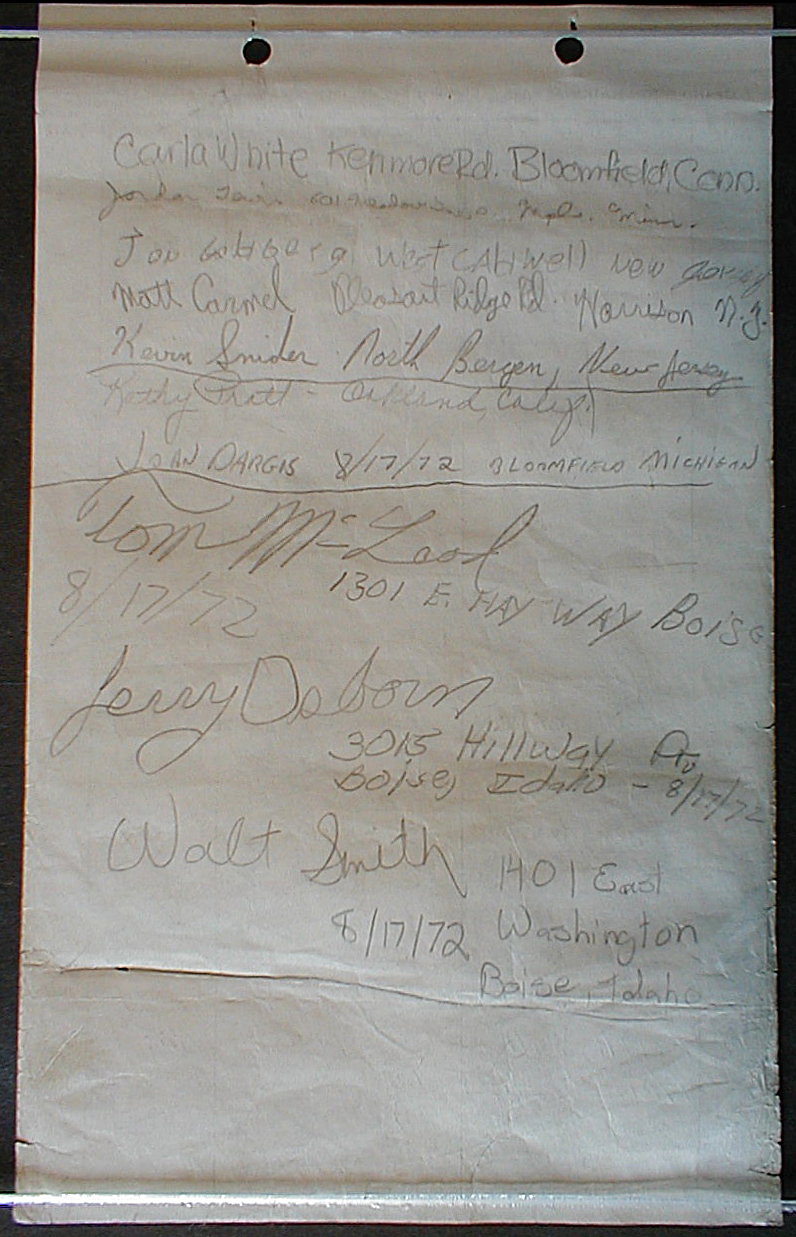 Carla White Kenmore Rd. Bloomfield, Conn.
Jordan Mpls. Minn.
Jon Goldberg West Caldwell New Jersey
Matt Carmel Pleasant Ridge Rd. Harrison N.J.
Kevin Snider North Bergen, New Jersey
Kathy Pratt - Oakland, Calif.
JOAN DARGIS 8/17/72 BLOOMFIELD MICHIGAN
Tom McLeod
8/17/72 1301 E. HAY WAY BOISE
Jerry Osborn
3015 Hillway Dr.
Boise, Idaho - 8/17/72
Walt Smith 1401 East
8/17/72 Washington
Boise, Idaho